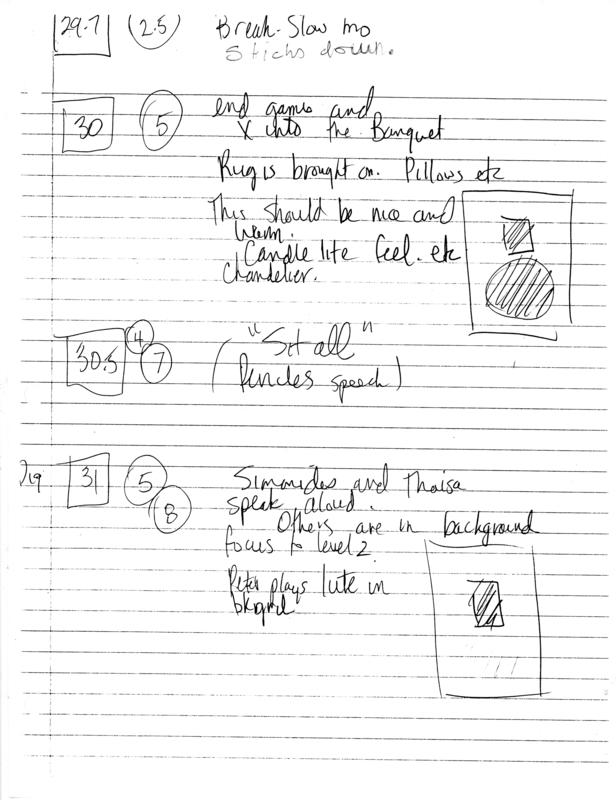 29.7 2.5 Break-Slow mo
Sticks down.
30 5 end games and
X into the Banquet
Rug is brought on. Pillows etc
This should be nice and
Warm.
Candle lite feel. etc
Chandelier.
30.5 4 7 "Sit all"
(Pericles speech)
31 5 8 Simonides and Thaisa
speak aloud.
Others are in background
focus to level 2.
Peter plays lute in
bkgrnd